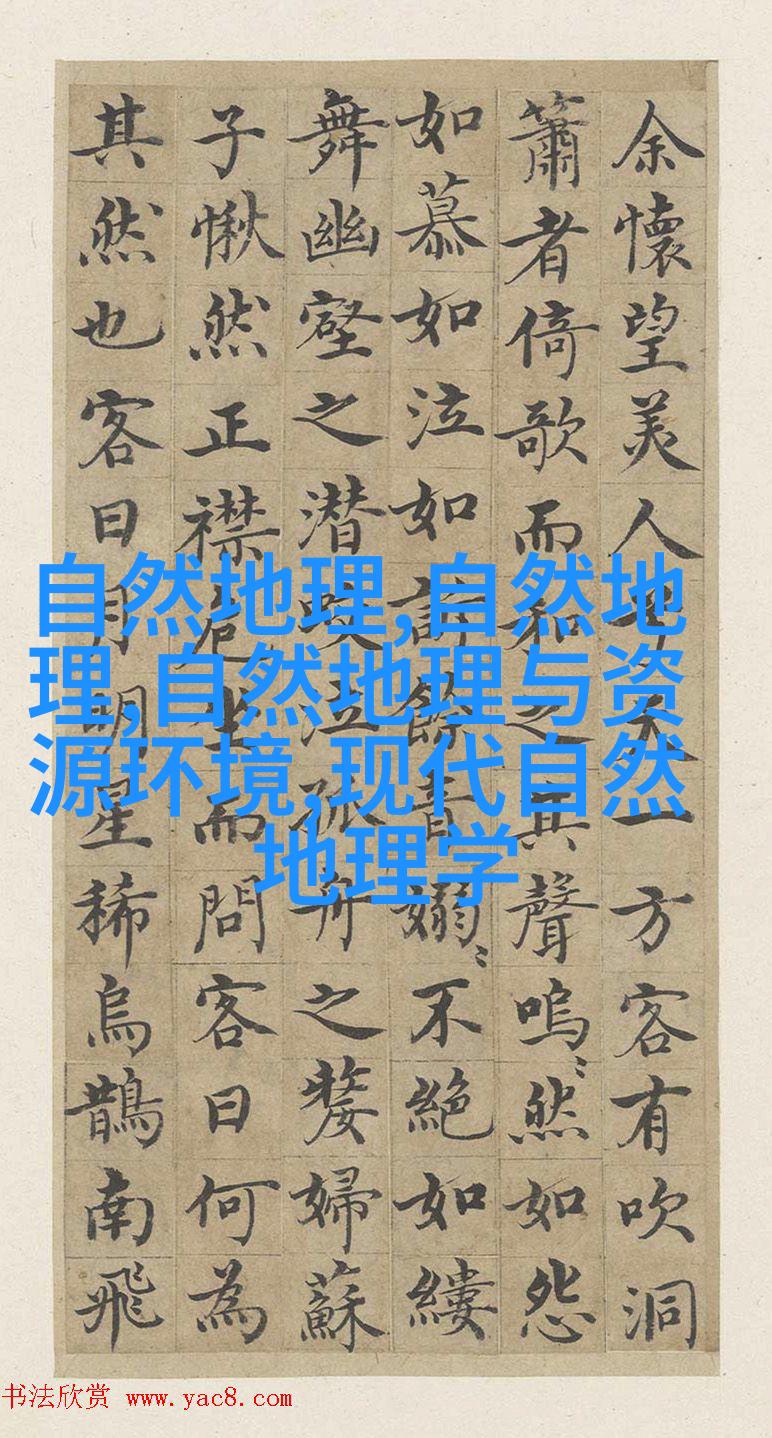 余懷望美人兮天一方客有吹洞
簫者倚歌而和之其聲嗚〻然如怨
如慕如泣如訴餘音嫋〻不絕如縷
舞幽壑之潜蛟泣孤舟之嫠婦蘇
子愀然正襟危坐而問客曰何為
其然也客曰月明星稀烏鵲南飛
自然地理,自然地
理,自然地理与资
源环境,现代自然
地理学
书法欣赏 www.yac8.com